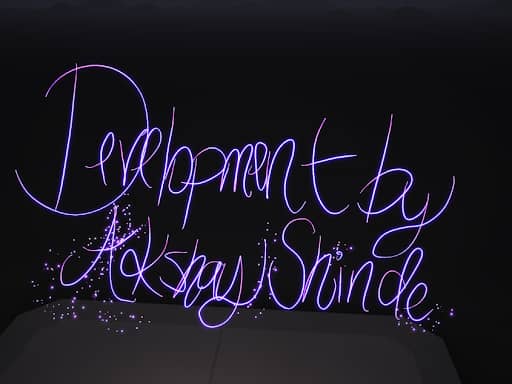 Development by
Akshay Shinde